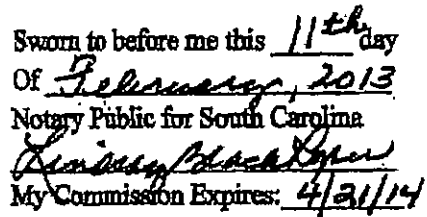 Sworn to before me this 11th day
Of February, 2013
Notary Public for South Carolina
Lindsay Black
My Commission Expires: 4/21/14